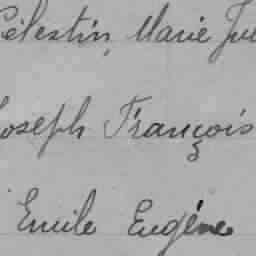 Célestin, Marie Ju
Joseph François
Emile Eugène